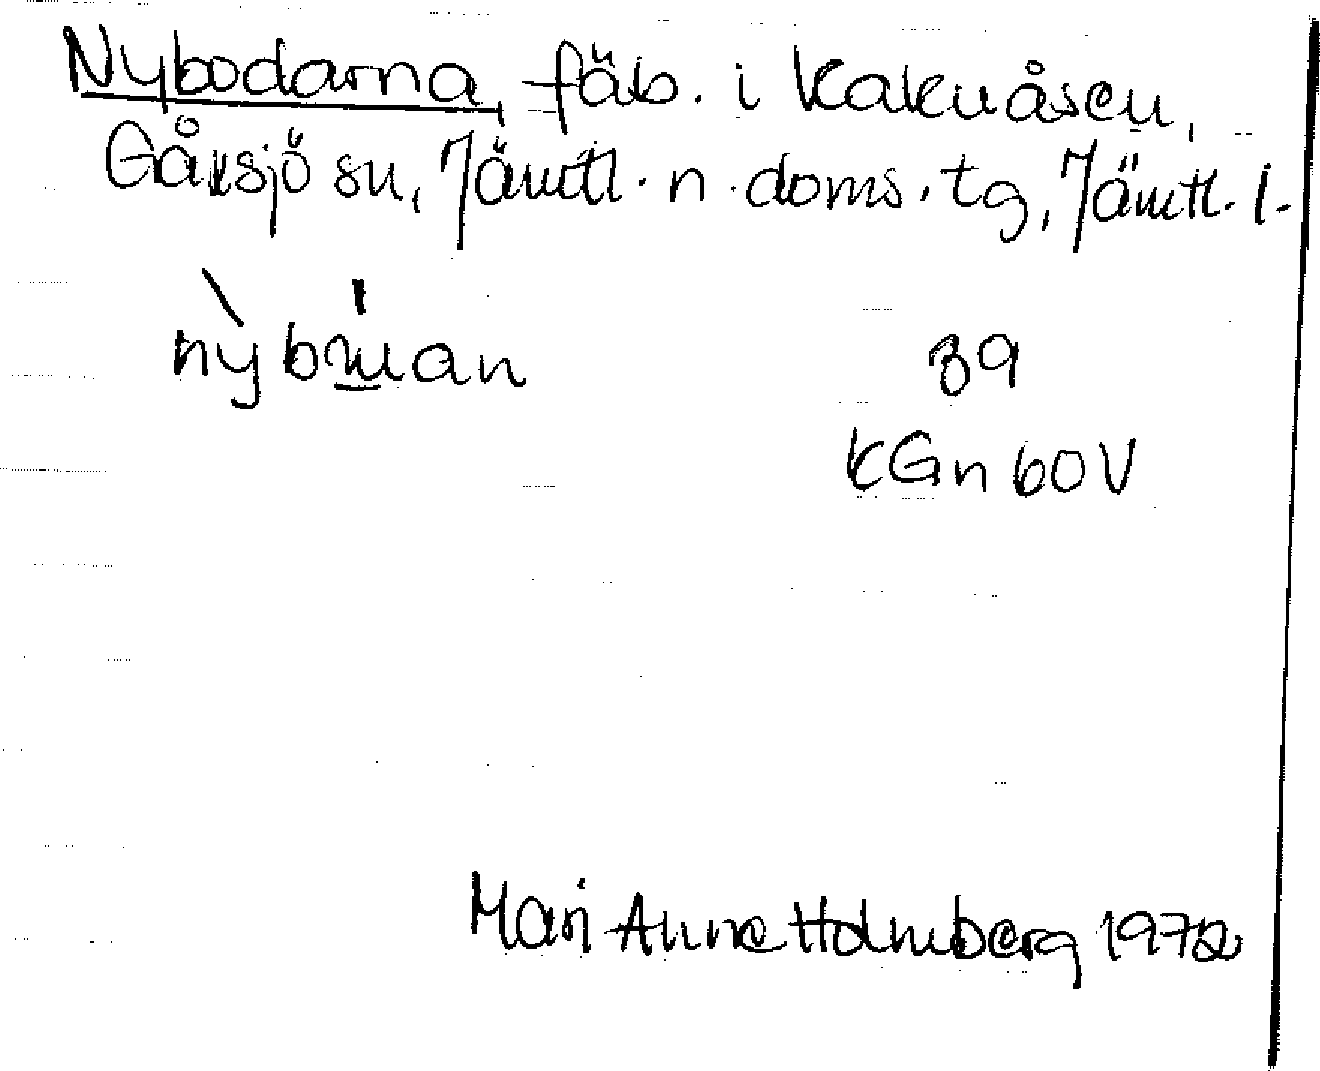 Nybodarna, fäb. i Kakuåsen,
Gåxsjö sn, Jämtl. n. doms. tg, Jämtl. l.
39
KGn 60 V
Mari Anne Holmberg 1972